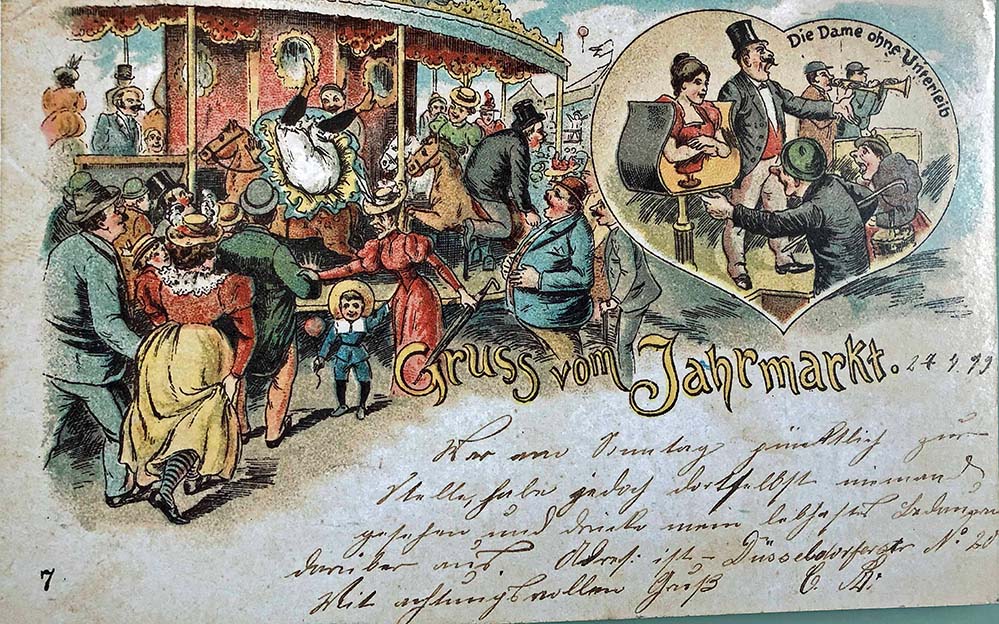 Die Dame ohne Unterleib
Gruss vom Jahrmarkt.
24 4 99
War am Sonntag pünktlich zur
Stelle, habe jedoch dortselbst niemand
gesehen und drücke mein lebhaftes Bedauern
darüber aus. Adres: ist - Düsseldorferstr No 20
Mit achtungsvollen Gruß C. R.
7